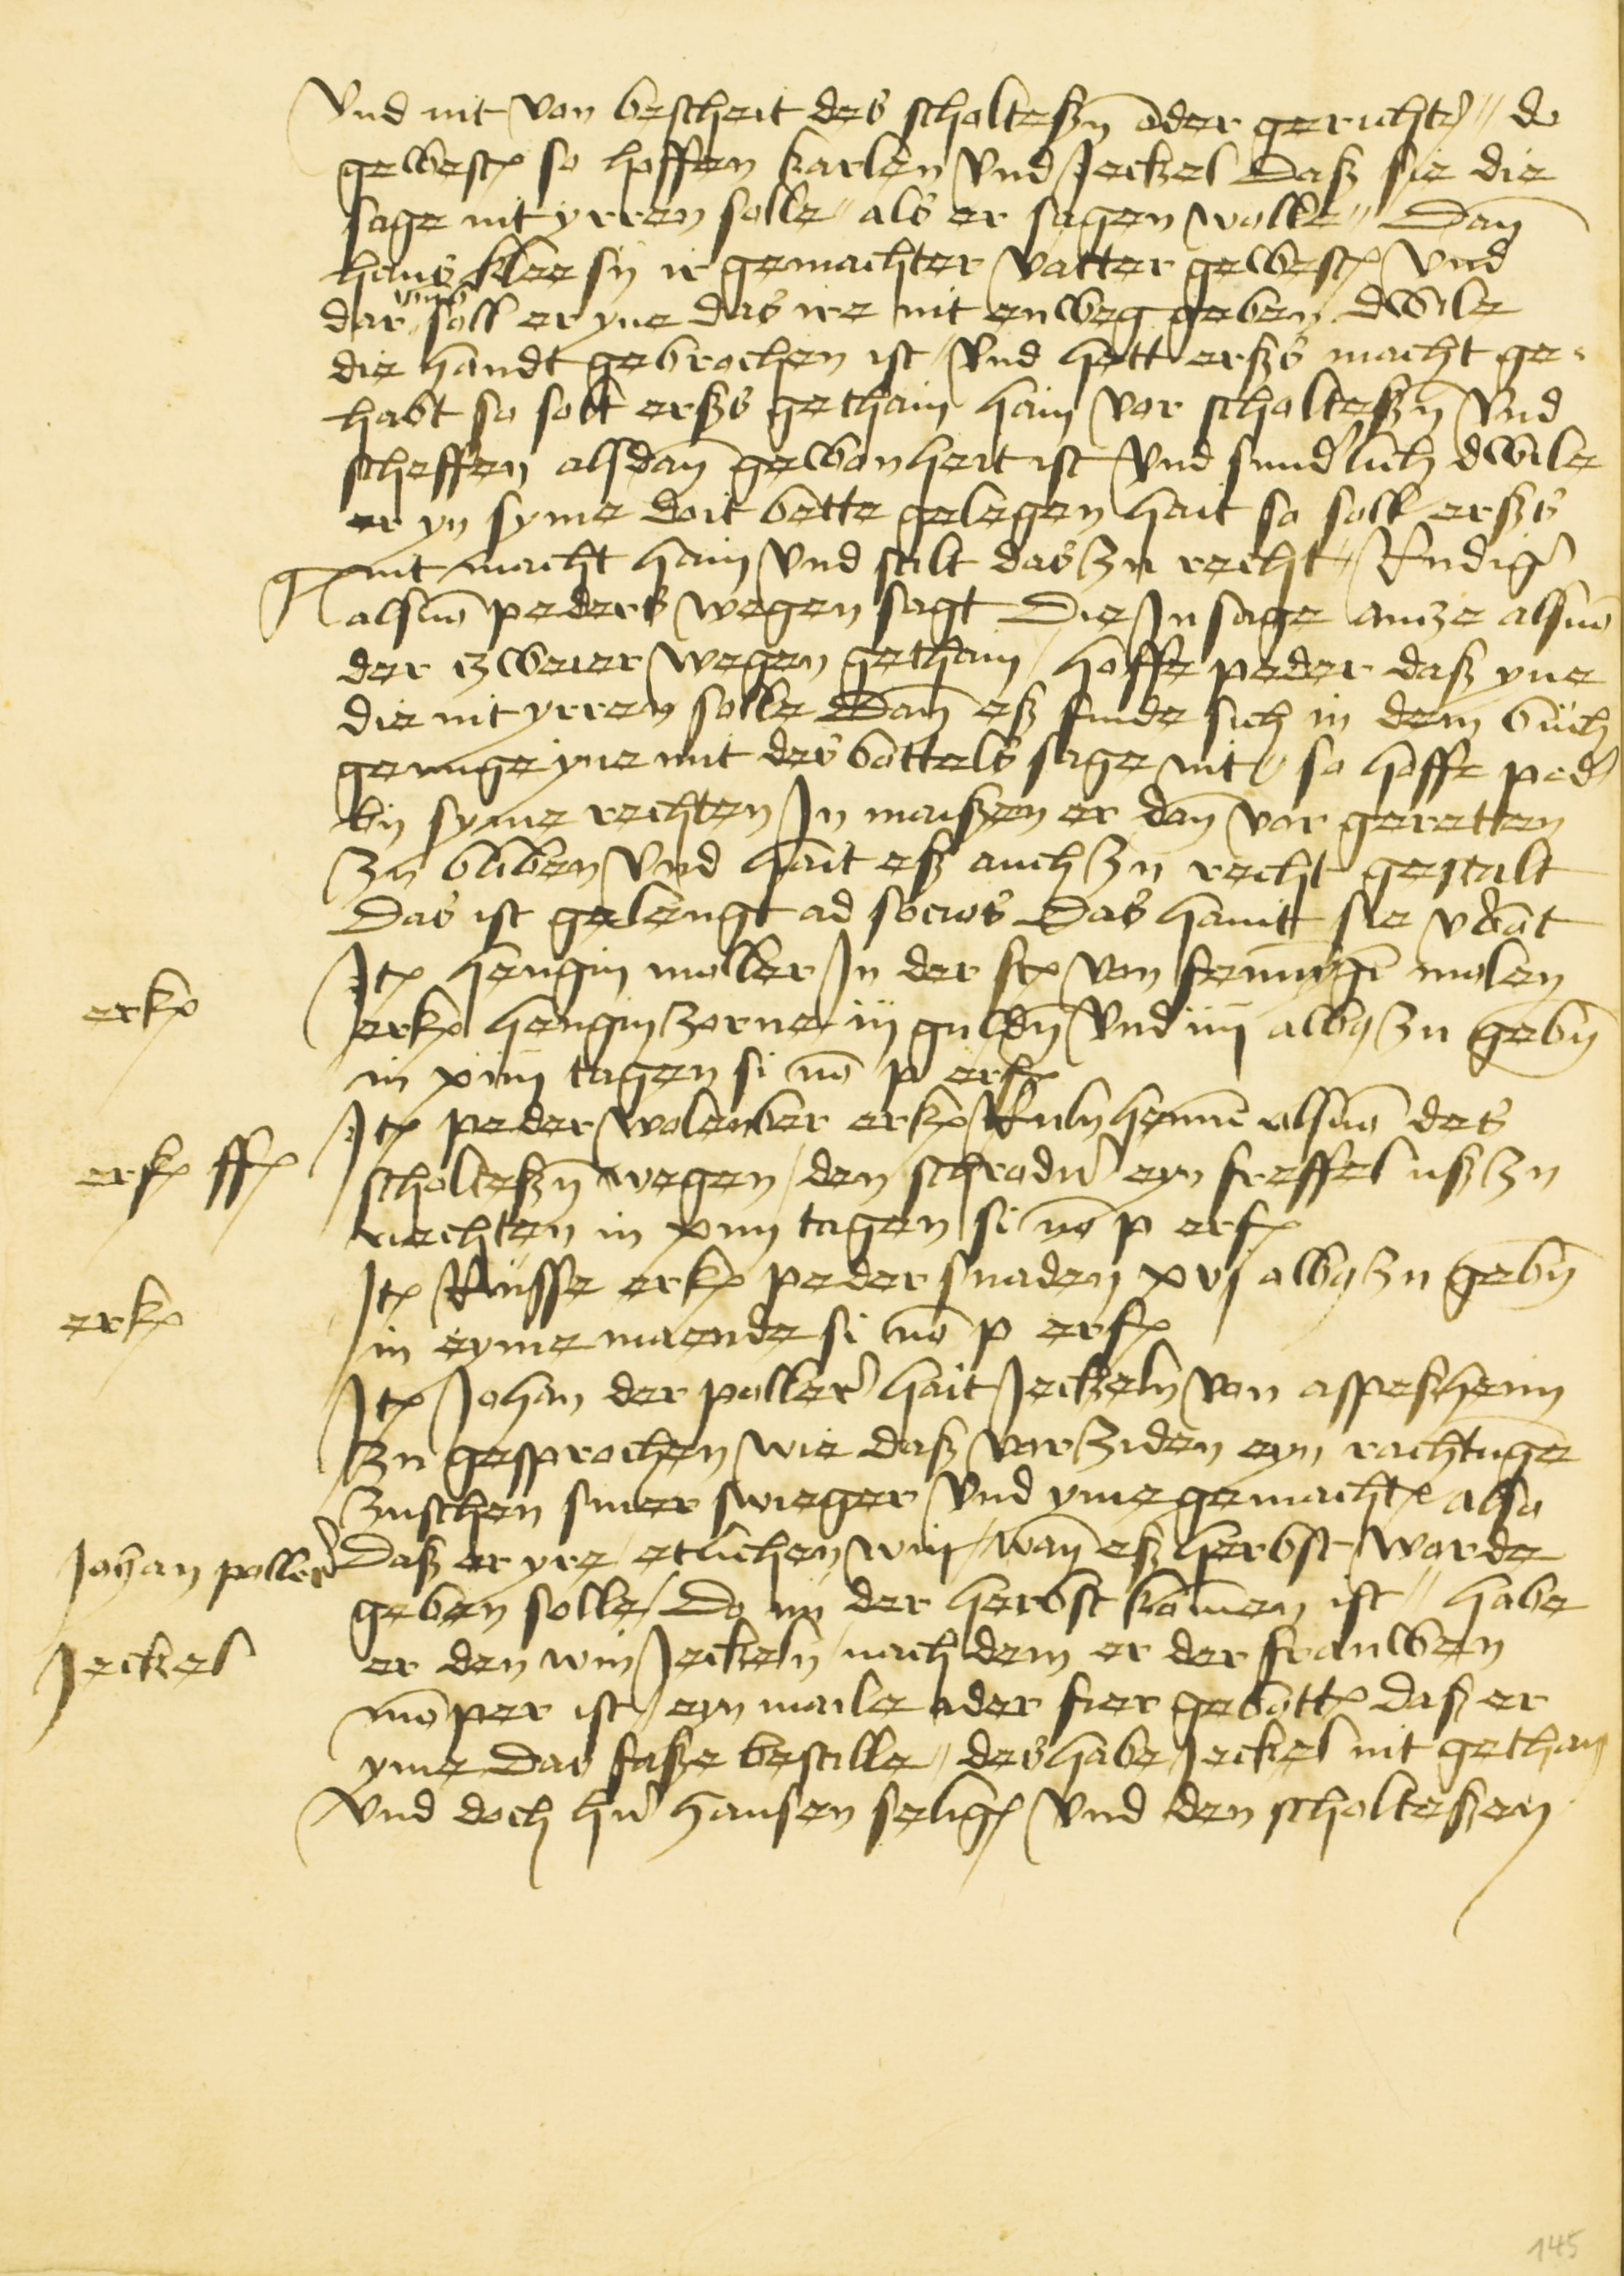 Vnd nit von bescheit des scholteßn ader gerichts // do
gewest so hoffen karlen vnd Jeckel daß sie die
sage nit yrren solle // als er sagen wolle // dan
hans klee sy ir gemachter vatter gewest vnd
dar vmb soll er yne das ire nit enweg geben dwile
die handt gebrochen ist vnd hett erßs macht ge-
habt so solt erßs gethain hain vor scholteßn vnd
scheffen alßdan gewonheit ist vnd sunderlich dwile
er yn syme doit bette gelegen hait so soll erßs
nit macht hain vnd stilt das zu recht / Rudiger
als von peders wegen sagt die Jnsage antze als von
der zweier wegen gethain / hoffe peder daß yne
die nit yrren solle dan eß finde sich in dem buch
genuge yne mit des bottels sage nit // so hoffe peder
by syme rechten Jn maißen er dan vor geretten
zu bliben vnd hait eß auch zu recht gestalt
Das ist gelengt ad socios das haint sie vbant
Jtem hengin moller Jn der von molen
erk hengin zorne iij guldn vnd iiij albus zu gebn
in xiiij tagen si no p erf
Jtem peder wolenber erk Ruln henne als von des
scholteßn wegen / den schroder eyn freffel uß zu
riechten in xiiij tagen si no p erf
Jtem Rüsse erk peder snaden xvj albus zu gebn
in eyme maende si no p erf
Jtem Johan der poller hait Jeckeln von aspeßheim
zu gesprochen wie daß vor ziden eyn rachtunge
zuschen siner swieger vnd yme gemacht also
Johan poller daß er yre / etlichen win / wan eß herbst worde
geben solle / Do nu der herbst komen ist // habe
Jeckel er den win Jeckeln / nach dem er der frauwen
momper ist / eyn maile ader fier gebotten daß er
yme das faße bestille // des habe Jeckel nit gethan
vnd doch her hansen selig vnd den scholteßen
erk
erf ff
erk
145